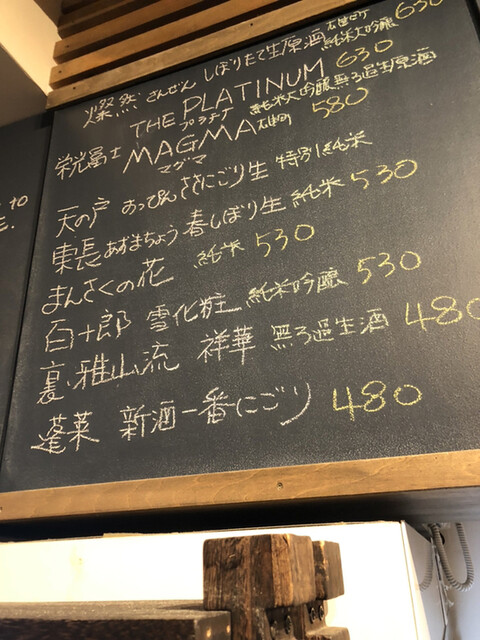 燦然 さんぜん しぼりたて生原酒 雄町 純米大吟醸 630
THE PLATINUM 純米大吟醸無ろ過生原酒 630
プラチナ
栄冨士 MAGMA 雄町 580
マグマ
天の戸 おっぴん ささにごり生 特別純米
東長 あずまちょう 春しぼり生 純米 530
まんさくの花 純米 530
百十郎 雪化粧 純米吟醸 530
裏・雅山流 祥華 無ろ過生酒 480
蓬莱 新酒一番にごり 480
to